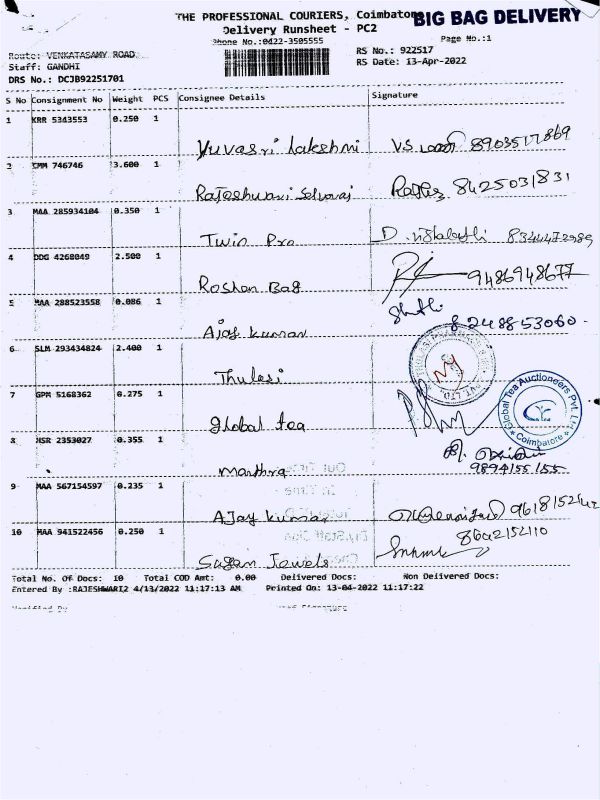 THE PROFESSIONAL COURIERS, Coimbatore
BIG BAG DELIVERY
Delivery Runsheet - PC2
Phone No.:0422-3505555
Page No.:1
Route: VENKATASAMY ROAD
RS No.: 922517
Staff: GANDHI
RS Date: 13-Apr-2022
DRS No.: DCJB92251701
S No Consignment No Weight PCS Consignee Details Signature
1 KRR 5343553 0.250 1
Yuvasri Lakshmi V.S. 8903517869
2 CMM 746746 3.600 1
Rajeshwari Selvaraj 8425031831
3 MAA 285934104 0.350 1
Twin Pro D. 8344472989
4 DDG 4268049 2.500 1
Roshan Bag 9486948677
5 MAA 288523558 0.086 1
Ajay kumar 8248853060
6 SLM 293434824 2.400 1
Thulasi
7 GPM 5168362 0.275 1
Global tea
Global Tea Auctioneers Pvt. Ltd.
Coimbatore
8 HSR 2353027 0.355 1
marthra 9894155155
9 MAA 567154597 0.235 1
AJay kumar
10 MAA 941522456 0.250 1
Sagan Jewels 8602152110
Total No. Of Docs: 10 Total COD Amt: 0.00 Delivered Docs: Non Delivered Docs:
Entered By :RAJESHWARI2 4/13/2022 11:17:13 AM Printed On: 13-04-2022 11:17:22